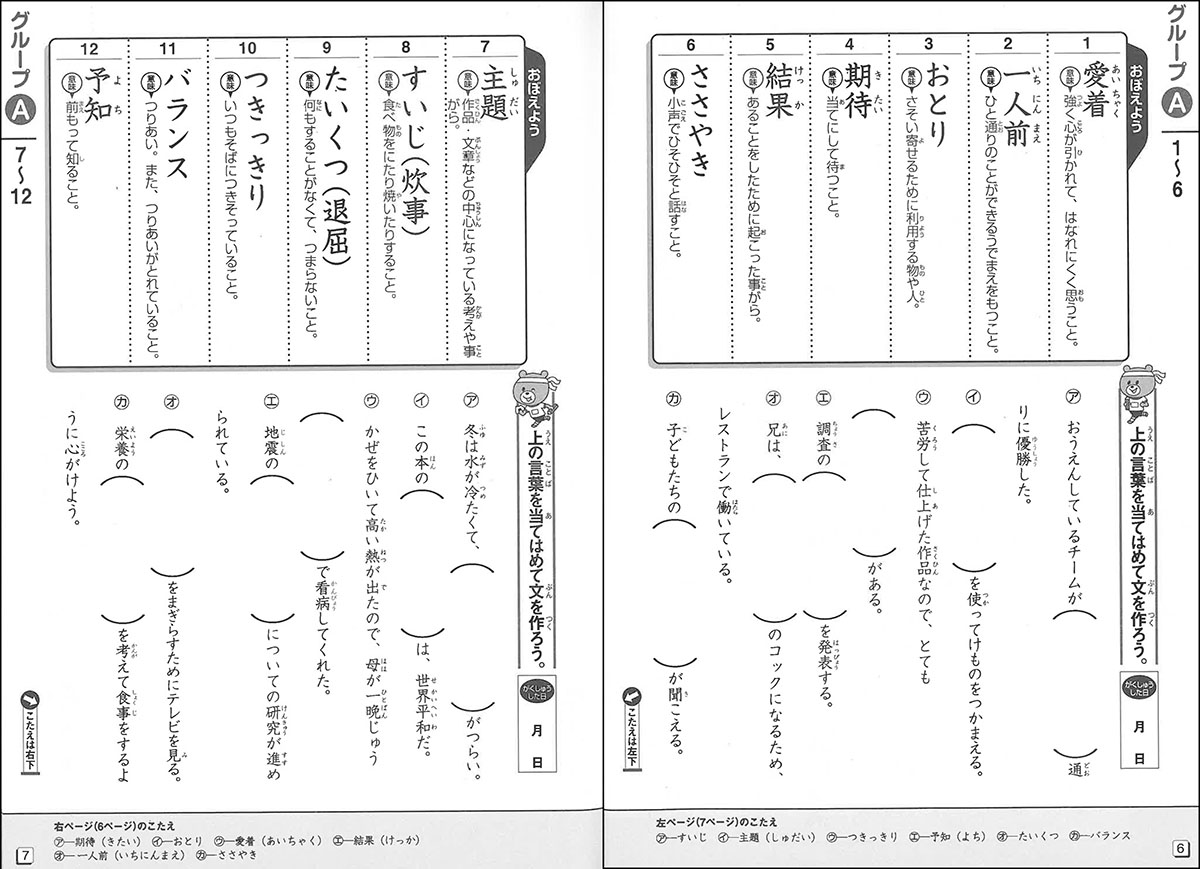 グループ A 1〜6
おぼえよう
1
愛着
あいちゃく
意味 強く心が引かれて、はなれにくく思うこと。
2
一人前
いちにんまえ
意味 ひと通りのことができるうでまえをもつこと。
3
おとり
意味 さそい寄せるために利用する物や人。
4
期待
きたい
意味 当てにして待つこと。
5
結果
けっか
意味 あることをしたために起こった事がら。
6
ささやき
意味 小声でひそひそと話すこと。
上の言葉を当てはめて文を作ろう。
がくしゅうした日
月 日
ア おうえんしているチームが（ ）通
りに優勝した。
イ （ ）を使ってけものをつかまえる。
ウ 苦労して仕上げた作品なので、とても
（ ）がある。
エ 調査の（ ）を発表する。
オ 兄は、（ ）のコックになるため、
レストランで働いている。
カ 子どもたちの（ ）が聞こえる。
こたえは左下
左ページ(7ページ)のこたえ
ア─すいじ イ─主題（しゅだい） ウ─つきっきり エ─予知（よち） オ─たいくつ カ─バランス
6
グループ A 7〜12
おぼえよう
7
主題
しゅだい
意味 作品・文章などの中心になっている考えや事
がら。
8
すいじ(炊事)
意味 食べ物をにたり焼いたりすること。
9
たいくつ(退屈)
意味 何もすることがなくて、つまらないこと。
10
つきっきり
意味 いつもそばにつきそっていること。
11
バランス
意味 つりあい。また、つりあいがとれていること。
12
予知
よち
意味 前もって知ること。
上の言葉を当てはめて文を作ろう。
がくしゅうした日
月 日
ア 冬は水が冷たくて、（ ）がつらい。
イ この本の（ ）は、世界平和だ。
ウ かぜをひいて高い熱が出たので、母が一晩じゅう
（ ）で看病してくれた。
エ 地震の（ ）についての研究が進め
られている。
オ （ ）をまぎらすためにテレビを見る。
カ 栄養の（ ）を考えて食事をするよ
うに心がけよう。
こたえは右下
右ページ(6ページ)のこたえ
ア─期待（きたい） イ─おとり ウ─愛着（あいちゃく） エ─結果（けっか）
オ─一人前（いちにんまえ） カ─ささやき
7